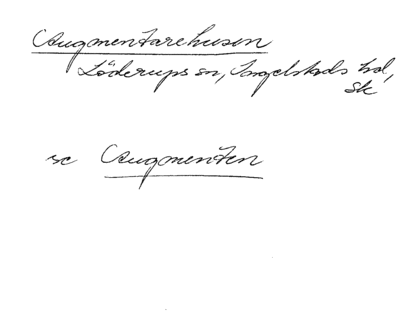 Augmentarehusen
Löderups sn, Ingelstads hd,
Sk
se Augmenten